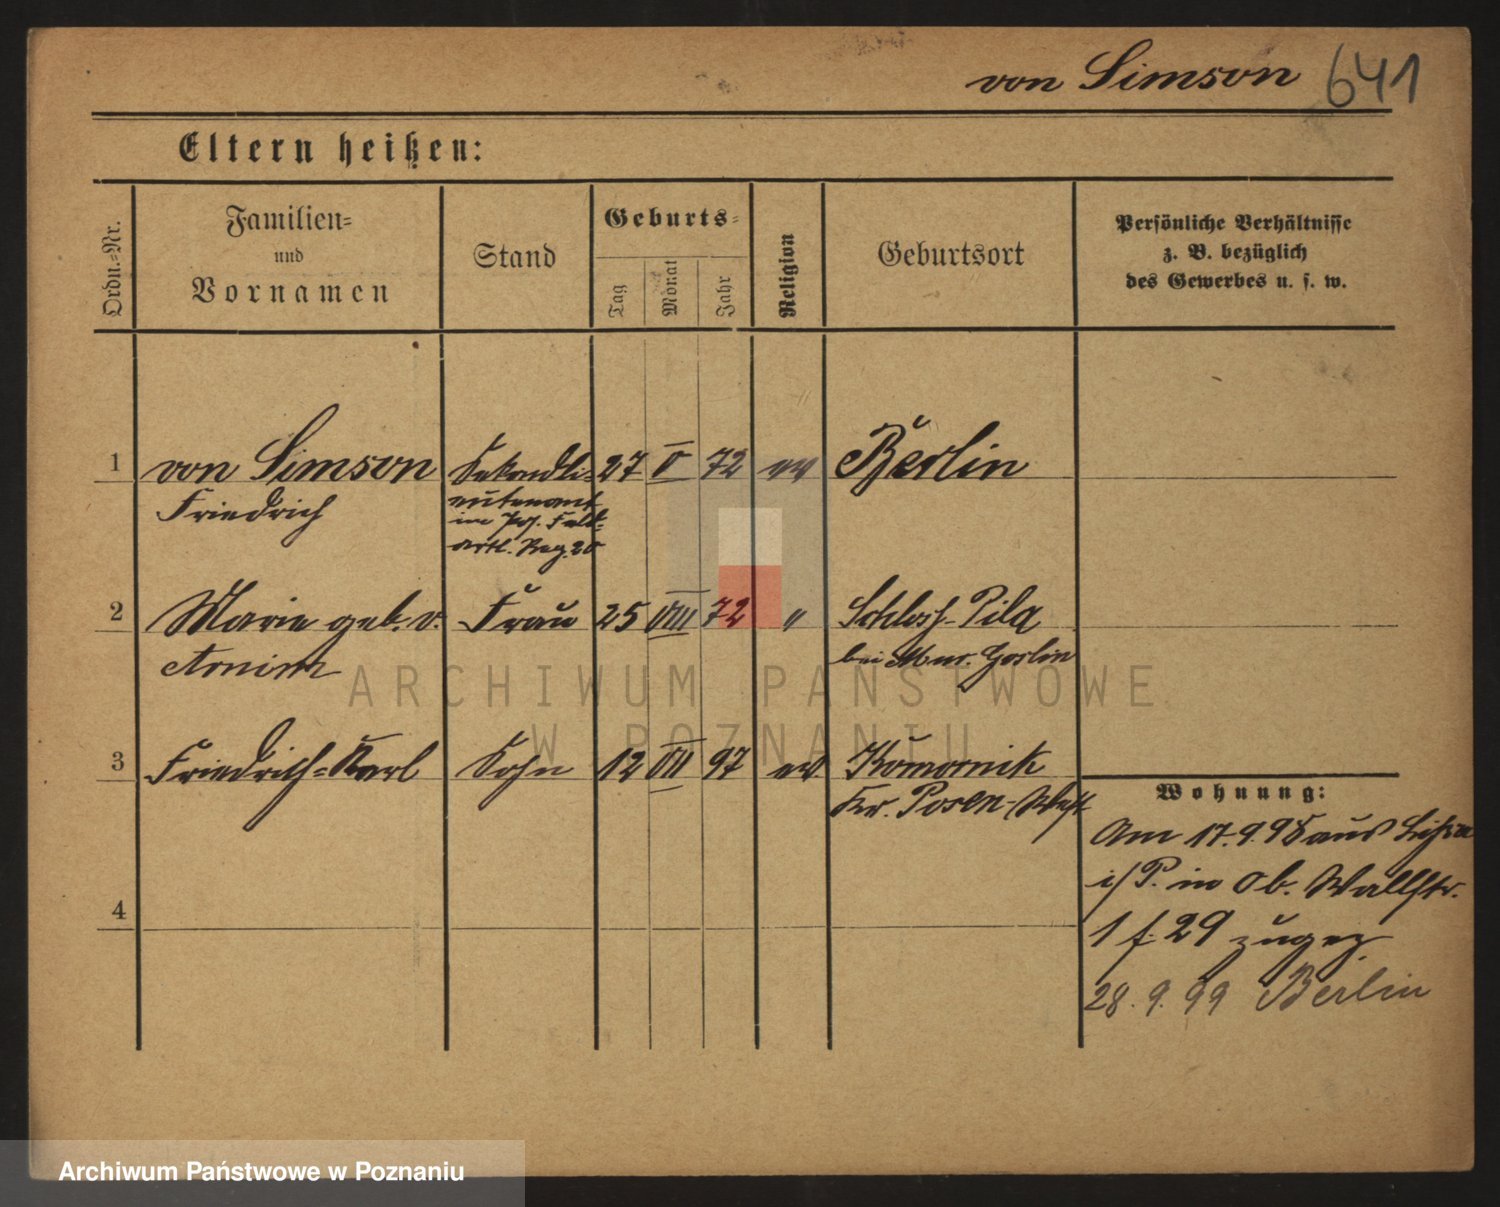 von Simson 641
Eltern heißen:
Ordn.-Nr.
Familien-
und
Vornamen
Stand
Geburts-
Tag
Monat
Jahr
Religion
Geburtsort
Persönliche Verhältnisse
z. B. bezüglich
des Gewerbes u. s. w.
1 von Simson Sekondli- 27 V 72 ev Berlin
Friedrich eutenant
im Pos. Feld-
artl. Reg. 20
2 Marie geb. v. Frau 25 VIII 72 " Schloß-Pila
Arnim bei Mur. Goslin
3 Friedrich-Karl Sohn 12 VII 97 ev Komornik
Kr. Posen-West
4
Wohnung:
Am 17.9.98 aus Lissa
i/P. in Ob. Wallstr.
1 f. 29 zugez.
28.9.99 Berlin
ARCHIWUM PAŃSTWOWE
W POZNANIU
Archiwum Państwowe w Poznaniu